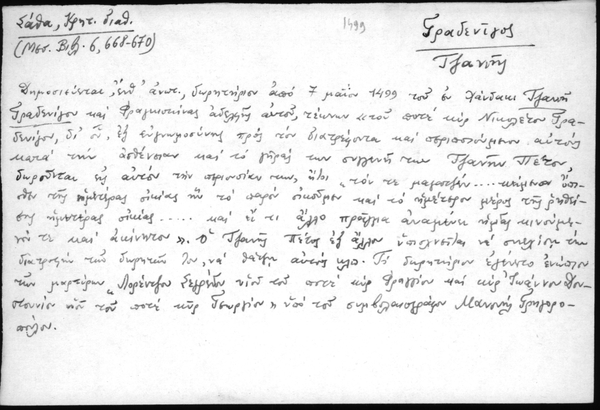 Σάθα, Κρητ. διαθ.
(Μεσ. Βιβλ. 6, 668-670)
1499
Γραδενίγος
Τζανῆς
Δημοσιεύεται, ἔνθ' ἀνωτ., δωρητήριον ἀπὸ 7 μαΐου 1499 τοῦ ἐν Χάνδακι Τζανῆ
Γραδενίγου καὶ Φραγκισκίνας ἀδελφῆς αὐτοῦ, τέκνων «τοῦ ποτὲ κὺρ Νικολέτου Γρα-
δενίγου, δι' οὗ, ἐξ εὐγνωμοσύνης πρὸς τὸν διατρέφοντα καὶ περιποιούμενον αὐτοὺς
κατὰ τὴν ἀσθένειαν καὶ τὸ γῆρας των συγγενῆ των Τζανῆν Πέτον
δωροῦνται εἰς αὐτὸν τὴν περιουσίαν των, ἤτοι „τόν τε μαγατζέν.... κείμενον ὑπο-
κάτω τῆς ἡμετέρας οἰκίας ἣν τὸ παρὸν οἰκοῦμεν καὶ τὸ ἡμέτερον μέρος τῆς ῥηθεί-
σης ἡμετέρας οἰκίας ..... καὶ εἴ τι ἄλλο πρᾶγμα ἀναμένει ἡμᾶς κινούμε-
νόν τε καὶ ἀκίνητον». Ὁ Τζανῆς Πέτος ἐξ ἄλλου ὑπισχνεῖται νὰ συνεχίσῃ τὴν
διατροφὴν τῶν δωρητῶν του, νὰ θάψῃ αὐτοὺς κλπ. Τὸ δωρητήριον ἐγένετο ἐνώπιον
τῶν μαρτύρων „Λορέντζου Σεγρέδου υἱοῦ τοῦ ποτὲ κὺρ Φραγγίου καὶ κὺρ Ἰωάννου
υἱοῦ τοῦ ποτὲ κὺρ Γεωργίου» ὑπὸ τοῦ συμβολαιογράφου Μανουὴλ Γρηγορο-
πούλου.